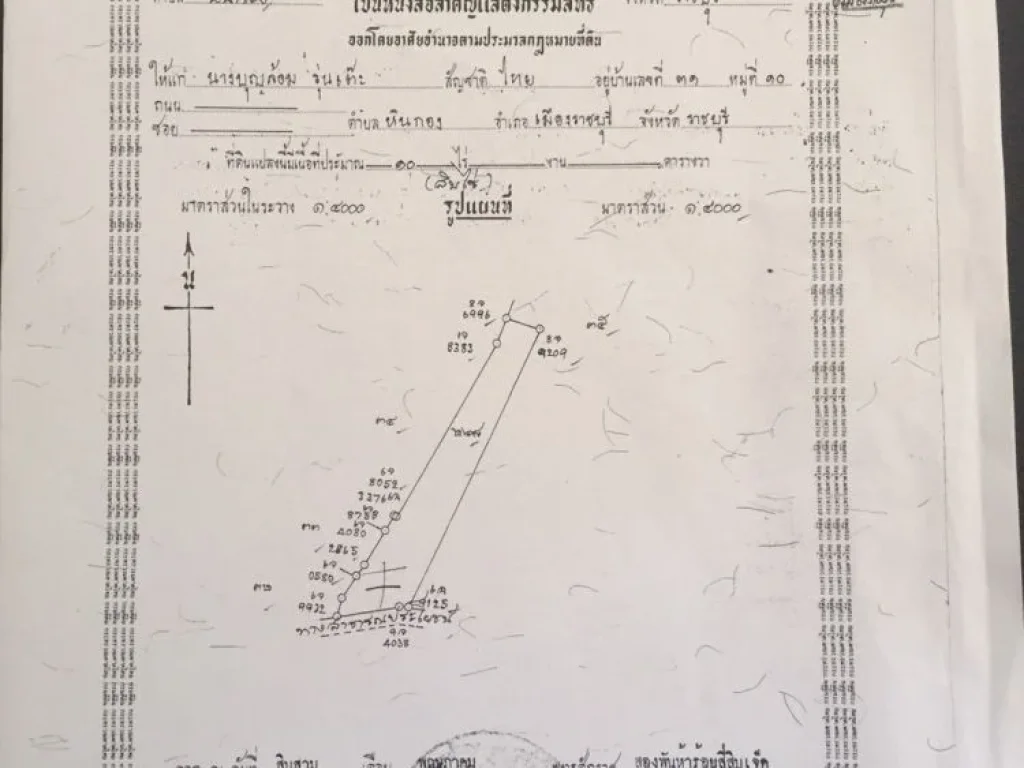 เป็นหนังสือสำคัญแสดงกรรมสิทธิ์
ออกโดยอาศัยอำนาจตามประมวลกฎหมายที่ดิน
ให้แก่ นางบุญล้อม รุ่นเต๊ะ สัญชาติ ไทย อยู่บ้านเลขที่ ๓๑ หมู่ที่ ๑๐
ถนน
ซอย ตำบล หินกอง อำเภอ เมืองราชบุรี จังหวัด ราชบุรี
ที่ดินแปลงนี้มีเนื้อที่ประมาณ ๑๐ ไร่ งาน ตารางวา
(สิบไร่)
มาตราส่วนในระวาง ๑:๔๐๐๐ รูปแผนที่ มาตราส่วน ๑:๔๐๐๐
น
6996
8383
9209
๓๔
8052
3276
8788
๓๓ 4080
2865
0580
9932
9125
ทางสาธารณประโยชน์
4038
ออก ณ วันที่ สิบสาม เดือน พฤษภาคม พุทธศักราช สองพันห้าร้อยสี่สิบเจ็ด